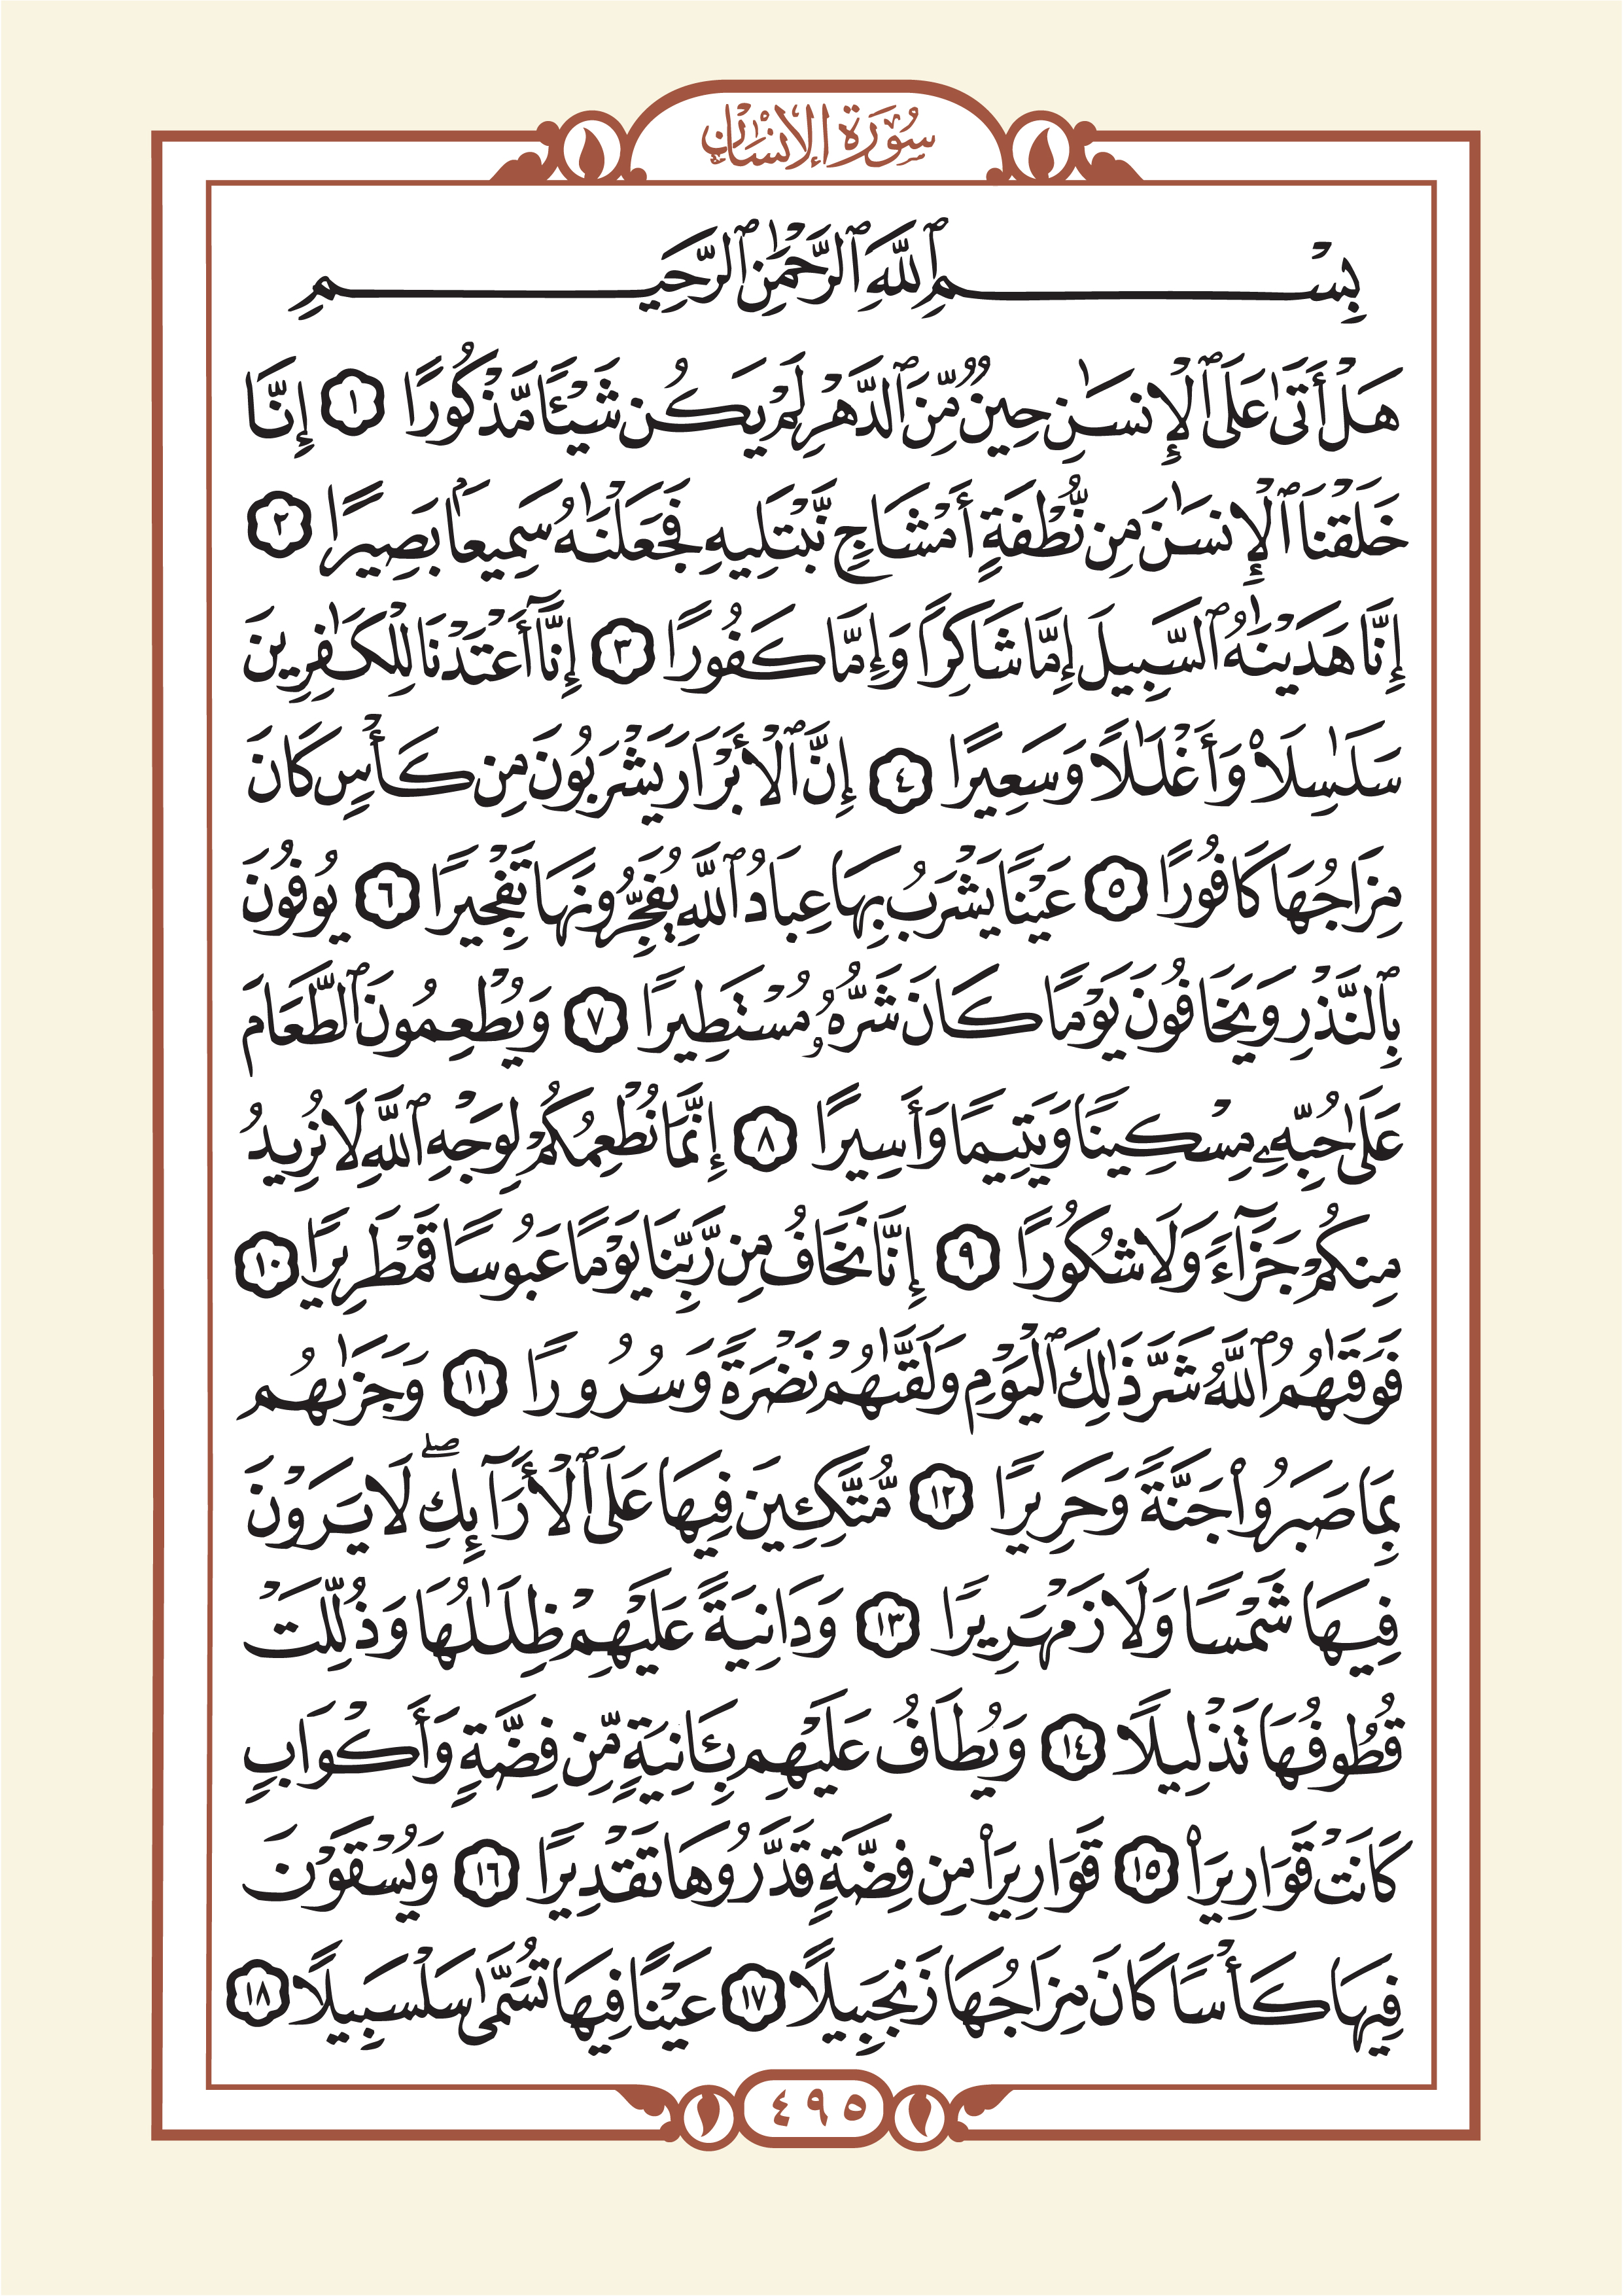 سُورَةُ الإِنْسَانِ
بِسْمِ ٱللَّهِ ٱلرَّحْمَٰنِ ٱلرَّحِيمِ
هَلْ أَتَىٰ عَلَى ٱلْإِنسَٰنِ حِينٌ مِّنَ ٱلدَّهْرِ لَمْ يَكُن شَيْـًٔا مَّذْكُورًا ١ إِنَّا
خَلَقْنَا ٱلْإِنسَٰنَ مِن نُّطْفَةٍ أَمْشَاجٍ نَّبْتَلِيهِ فَجَعَلْنَٰهُ سَمِيعًۢا بَصِيرًا ٢
إِنَّا هَدَيْنَٰهُ ٱلسَّبِيلَ إِمَّا شَاكِرًا وَإِمَّا كَفُورًا ٣ إِنَّآ أَعْتَدْنَا لِلْكَٰفِرِينَ
سَلَٰسِلَا۟ وَأَغْلَٰلًا وَسَعِيرًا ٤ إِنَّ ٱلْأَبْرَارَ يَشْرَبُونَ مِن كَأْسٍ كَانَ
مِزَاجُهَا كَافُورًا ٥ عَيْنًا يَشْرَبُ بِهَا عِبَادُ ٱللَّهِ يُفَجِّرُونَهَا تَفْجِيرًا ٦ يُوفُونَ
بِٱلنَّذْرِ وَيَخَافُونَ يَوْمًا كَانَ شَرُّهُۥ مُسْتَطِيرًا ٧ وَيُطْعِمُونَ ٱلطَّعَامَ
عَلَىٰ حُبِّهِۦ مِسْكِينًا وَيَتِيمًا وَأَسِيرًا ٨ إِنَّمَا نُطْعِمُكُمْ لِوَجْهِ ٱللَّهِ لَا نُرِيدُ
مِنكُمْ جَزَآءً وَلَا شُكُورًا ٩ إِنَّا نَخَافُ مِن رَّبِّنَا يَوْمًا عَبُوسًا قَمْطَرِيرًا ١٠
فَوَقَىٰهُمُ ٱللَّهُ شَرَّ ذَٰلِكَ ٱلْيَوْمِ وَلَقَّىٰهُمْ نَضْرَةً وَسُرُورًا ١١ وَجَزَىٰهُم
بِمَا صَبَرُوا۟ جَنَّةً وَحَرِيرًا ١٢ مُّتَّكِـِٔينَ فِيهَا عَلَى ٱلْأَرَآئِكِ ۖ لَا يَرَوْنَ
فِيهَا شَمْسًا وَلَا زَمْهَرِيرًا ١٣ وَدَانِيَةً عَلَيْهِمْ ظِلَٰلُهَا وَذُلِّلَتْ
قُطُوفُهَا تَذْلِيلًا ١٤ وَيُطَافُ عَلَيْهِم بِـَٔانِيَةٍ مِّن فِضَّةٍ وَأَكْوَابٍ
كَانَتْ قَوَارِيرَا۠ ١٥ قَوَارِيرَا۟ مِن فِضَّةٍ قَدَّرُوهَا تَقْدِيرًا ١٦ وَيُسْقَوْنَ
فِيهَا كَأْسًا كَانَ مِزَاجُهَا زَنجَبِيلًا ١٧ عَيْنًا فِيهَا تُسَمَّىٰ سَلْسَبِيلًا ١٨
٤٩٥